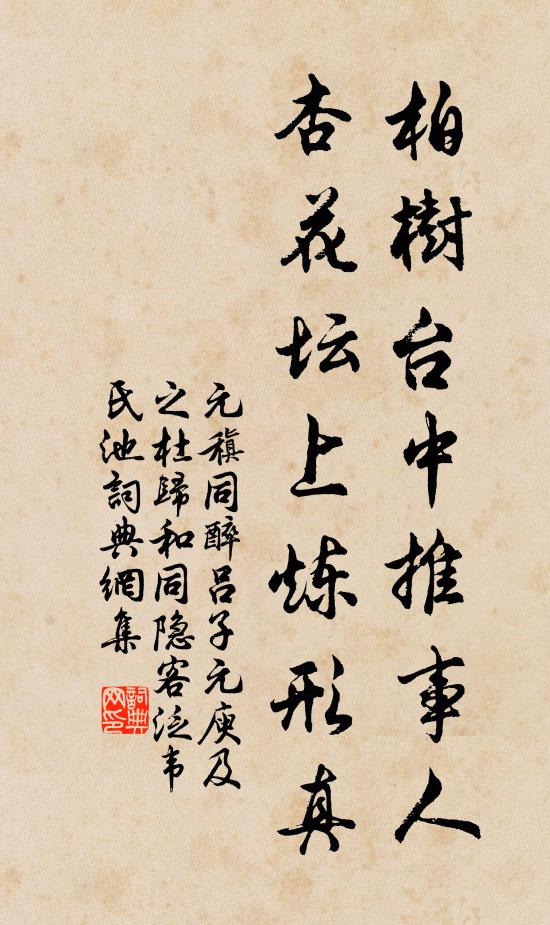 柏樹台中推事人
杏花坛上炼形真
元稹同醉吕子元庾及
之杜歸和同隐客泛韦
氏池詞典網集
詞典网印